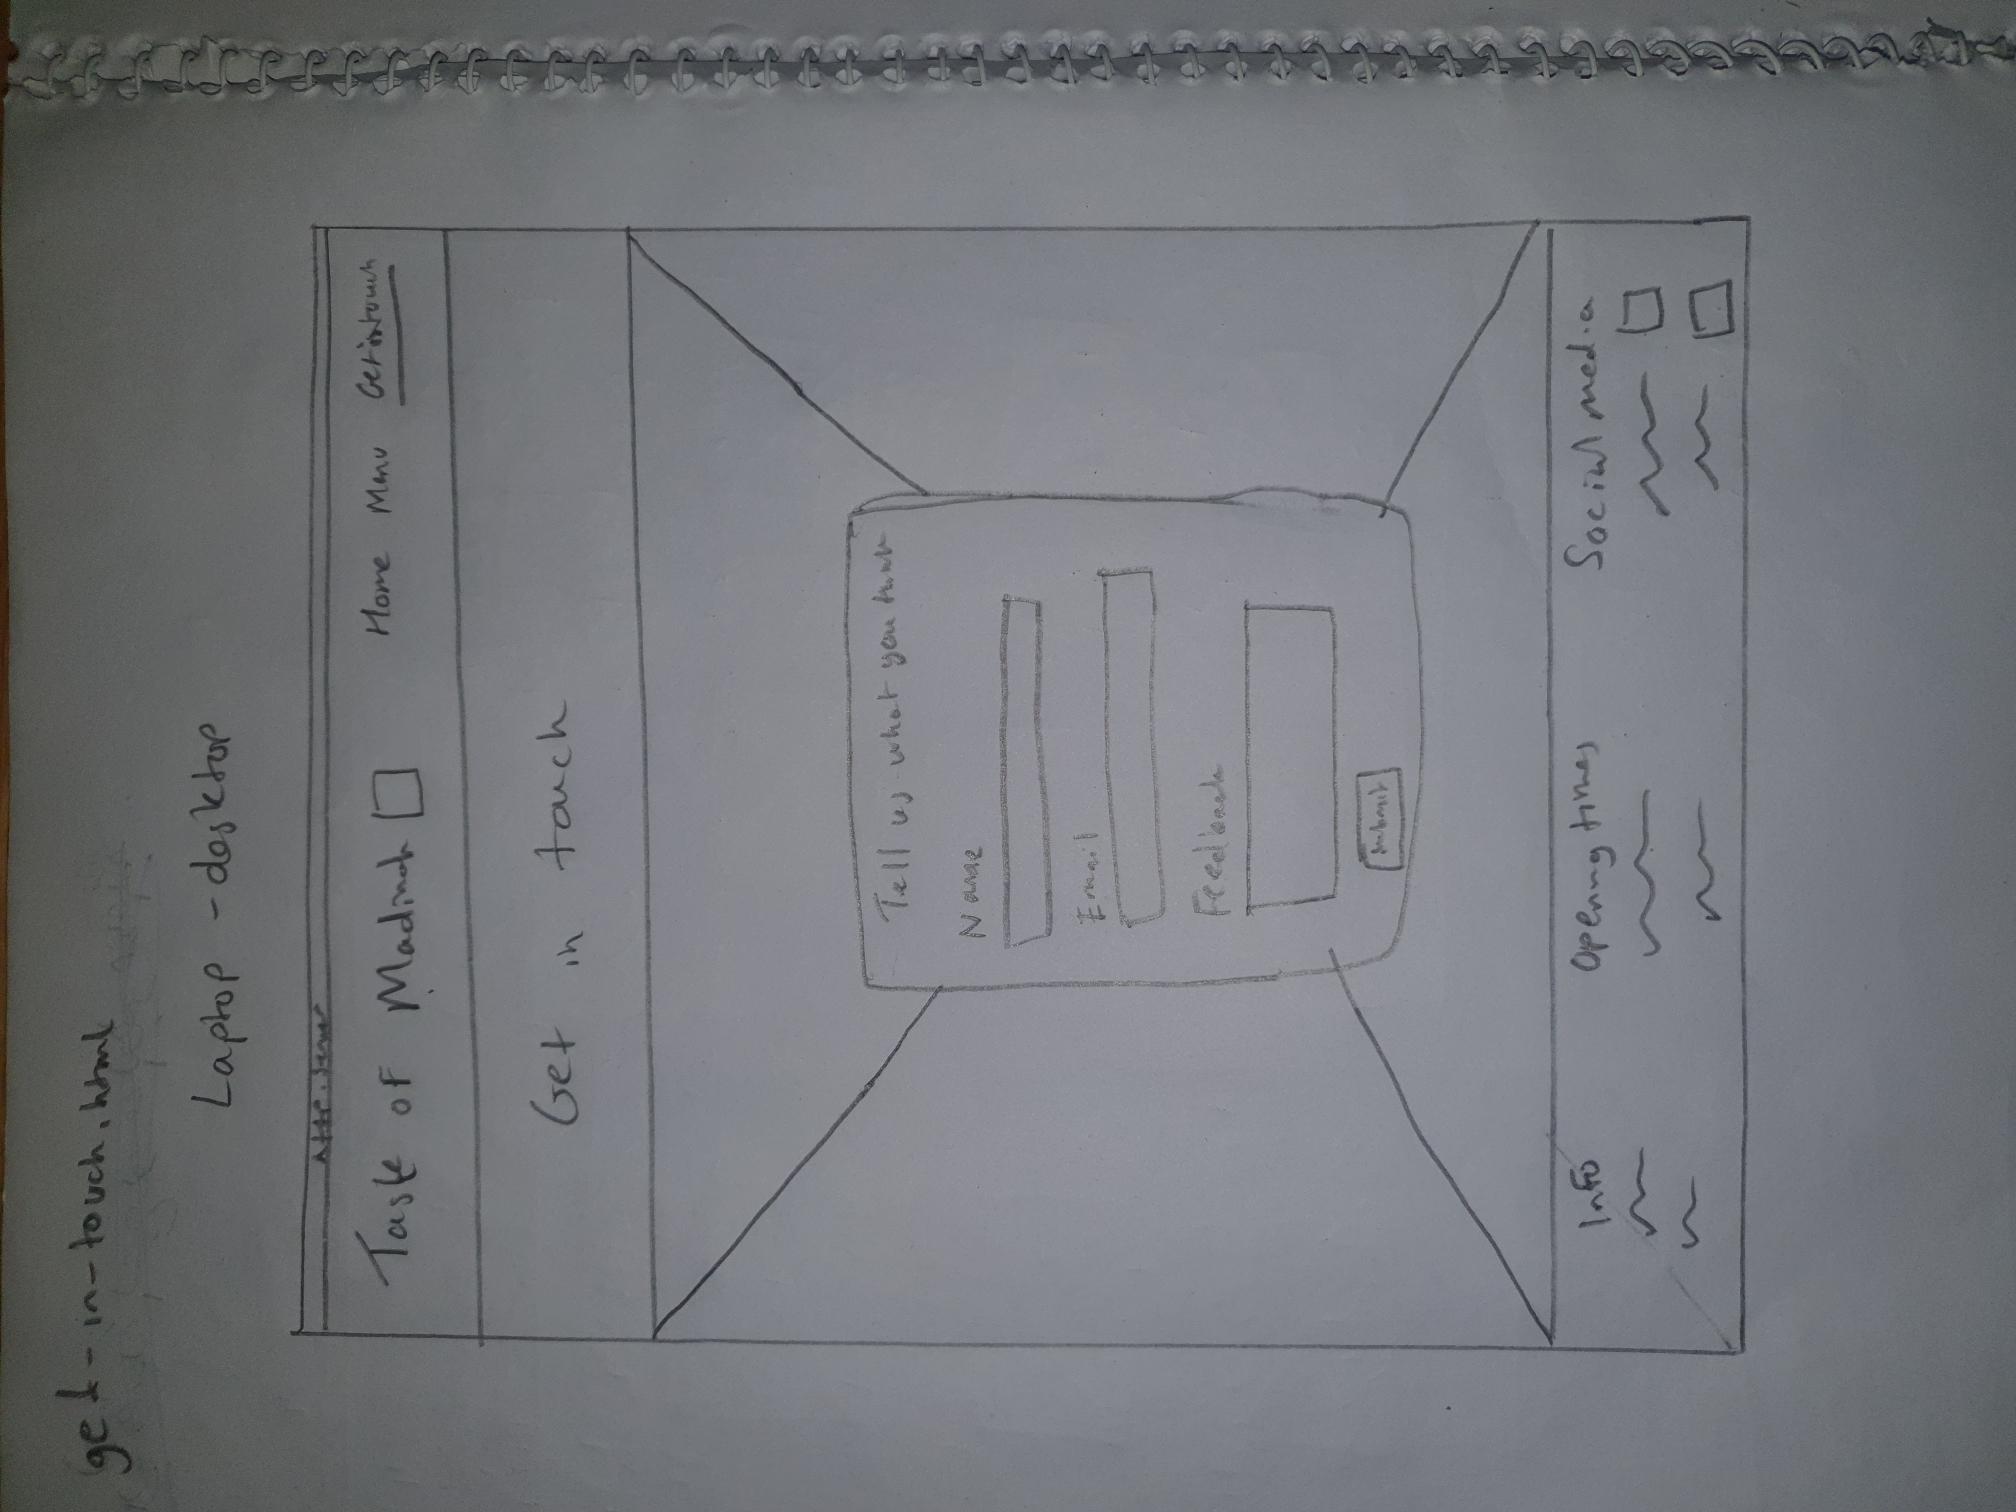 get-in-touch.html
Laptop - desktop
Taste of Madinah
Home Menu Get in touch
Get in touch
Tell us what you think
Name
Email
Feedback
Submit
Info Opening times Social media